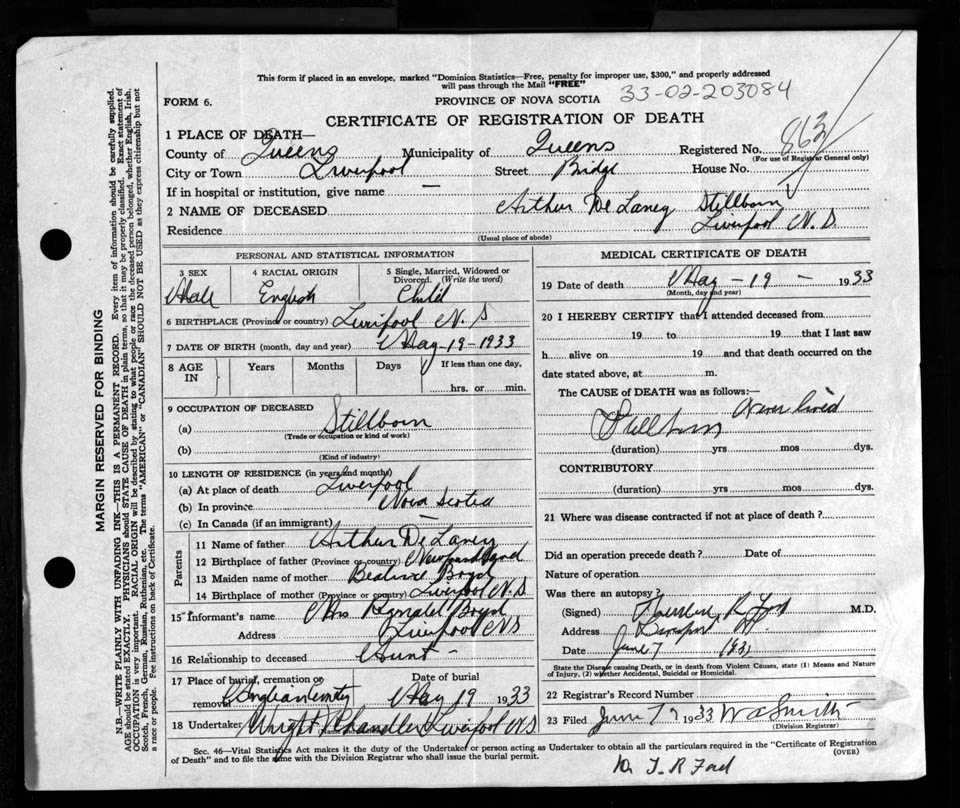 This form if placed in an envelope, marked "Dominion Statistics—Free, penalty for improper use, $300," and properly addressed
will pass through the Mail "FREE"
FORM 6.
PROVINCE OF NOVA SCOTIA
33-02-203084
CERTIFICATE OF REGISTRATION OF DEATH
1 PLACE OF DEATH—
County of Queens Municipality of Queens Registered No. 863
(For use of Registrar General only)
City or Town Liverpool Street Bridge House No.
If in hospital or institution, give name —
2 NAME OF DECEASED Arthur De Laney Stillborn
Residence Liverpool N.S.
(Usual place of abode)
PERSONAL AND STATISTICAL INFORMATION
3 SEX 4 RACIAL ORIGIN 5 Single, Married, Widowed or
Divorced. (Write the word)
Male English Child
6 BIRTHPLACE (Province or country) Liverpool N.S
7 DATE OF BIRTH (month, day and year) May-19-1933
8 AGE IN Years Months Days If less than one day,
hrs. or min.
9 OCCUPATION OF DECEASED
(a) Stillborn
(Trade or occupation or kind of work)
(b)
(Kind of industry)
10 LENGTH OF RESIDENCE (in years and months)
(a) At place of death Liverpool
(b) In province Nova Scotia
(c) In Canada (if an immigrant) —
Parents
11 Name of father Arthur De Laney
12 Birthplace of father (Province or country) Newfoundland
13 Maiden name of mother Beatrice Boyd
14 Birthplace of mother (Province or country) Liverpool N.S
15 Informant's name Mrs Boyd
Address Liverpool NS
16 Relationship to deceased Aunt -
17 Place of burial, cremation or
removal Date of burial May 19 1933
18 Undertaker Wright Chandler Liverpool NS
MEDICAL CERTIFICATE OF DEATH
19 Date of death May-19-1933
(Month, day and year)
20 I HEREBY CERTIFY that I attended deceased from
19 to 19 that I last saw
h alive on 19 and that death occurred on the
date stated above, at m.
The CAUSE OF DEATH was as follows:—
Stillborn Never lived
(duration) yrs mos dys.
CONTRIBUTORY
(duration) yrs mos dys.
21 Where was disease contracted if not at place of death?
Did an operation precede death? Date of
Nature of operation
Was there an autopsy?
(Signed) M.D.
Address Liverpool
Date June 7 1933
State the Disease causing Death, or in death from Violent Causes, state (1) Means and Nature
of Injury, (2) whether Accidental, Suicidal or Homicidal.
22 Registrar's Record Number
23 Filed June 7 1933 W A Smith
(Division Registrar)
Sec. 46—Vital Statistics Act makes it the duty of the Undertaker or person acting as Undertaker to obtain all the particulars required in the "Certificate of Registration
of Death" and to file the same with the Division Registrar who shall issue the burial permit.
(OVER)
Dr J. R Ford
MARGIN RESERVED FOR BINDING
N.B.—WRITE PLAINLY WITH UNFADING INK—THIS IS A PERMANENT RECORD. Every item of information should be carefully supplied.
AGE should be stated EXACTLY. PHYSICIANS should STATE CAUSE OF DEATH in plain terms, so that it may be properly classified. Exact statement of
OCCUPATION is very important. RACIAL ORIGIN will be described by stating to what people or race the deceased person belonged, whether English, Irish,
Scotch, French, German, Russian, Ruthenian, etc. The terms "AMERICAN" or "CANADIAN" SHOULD NOT BE USED as they express citizenship but not
a race or people. See instructions on back of Certificate.